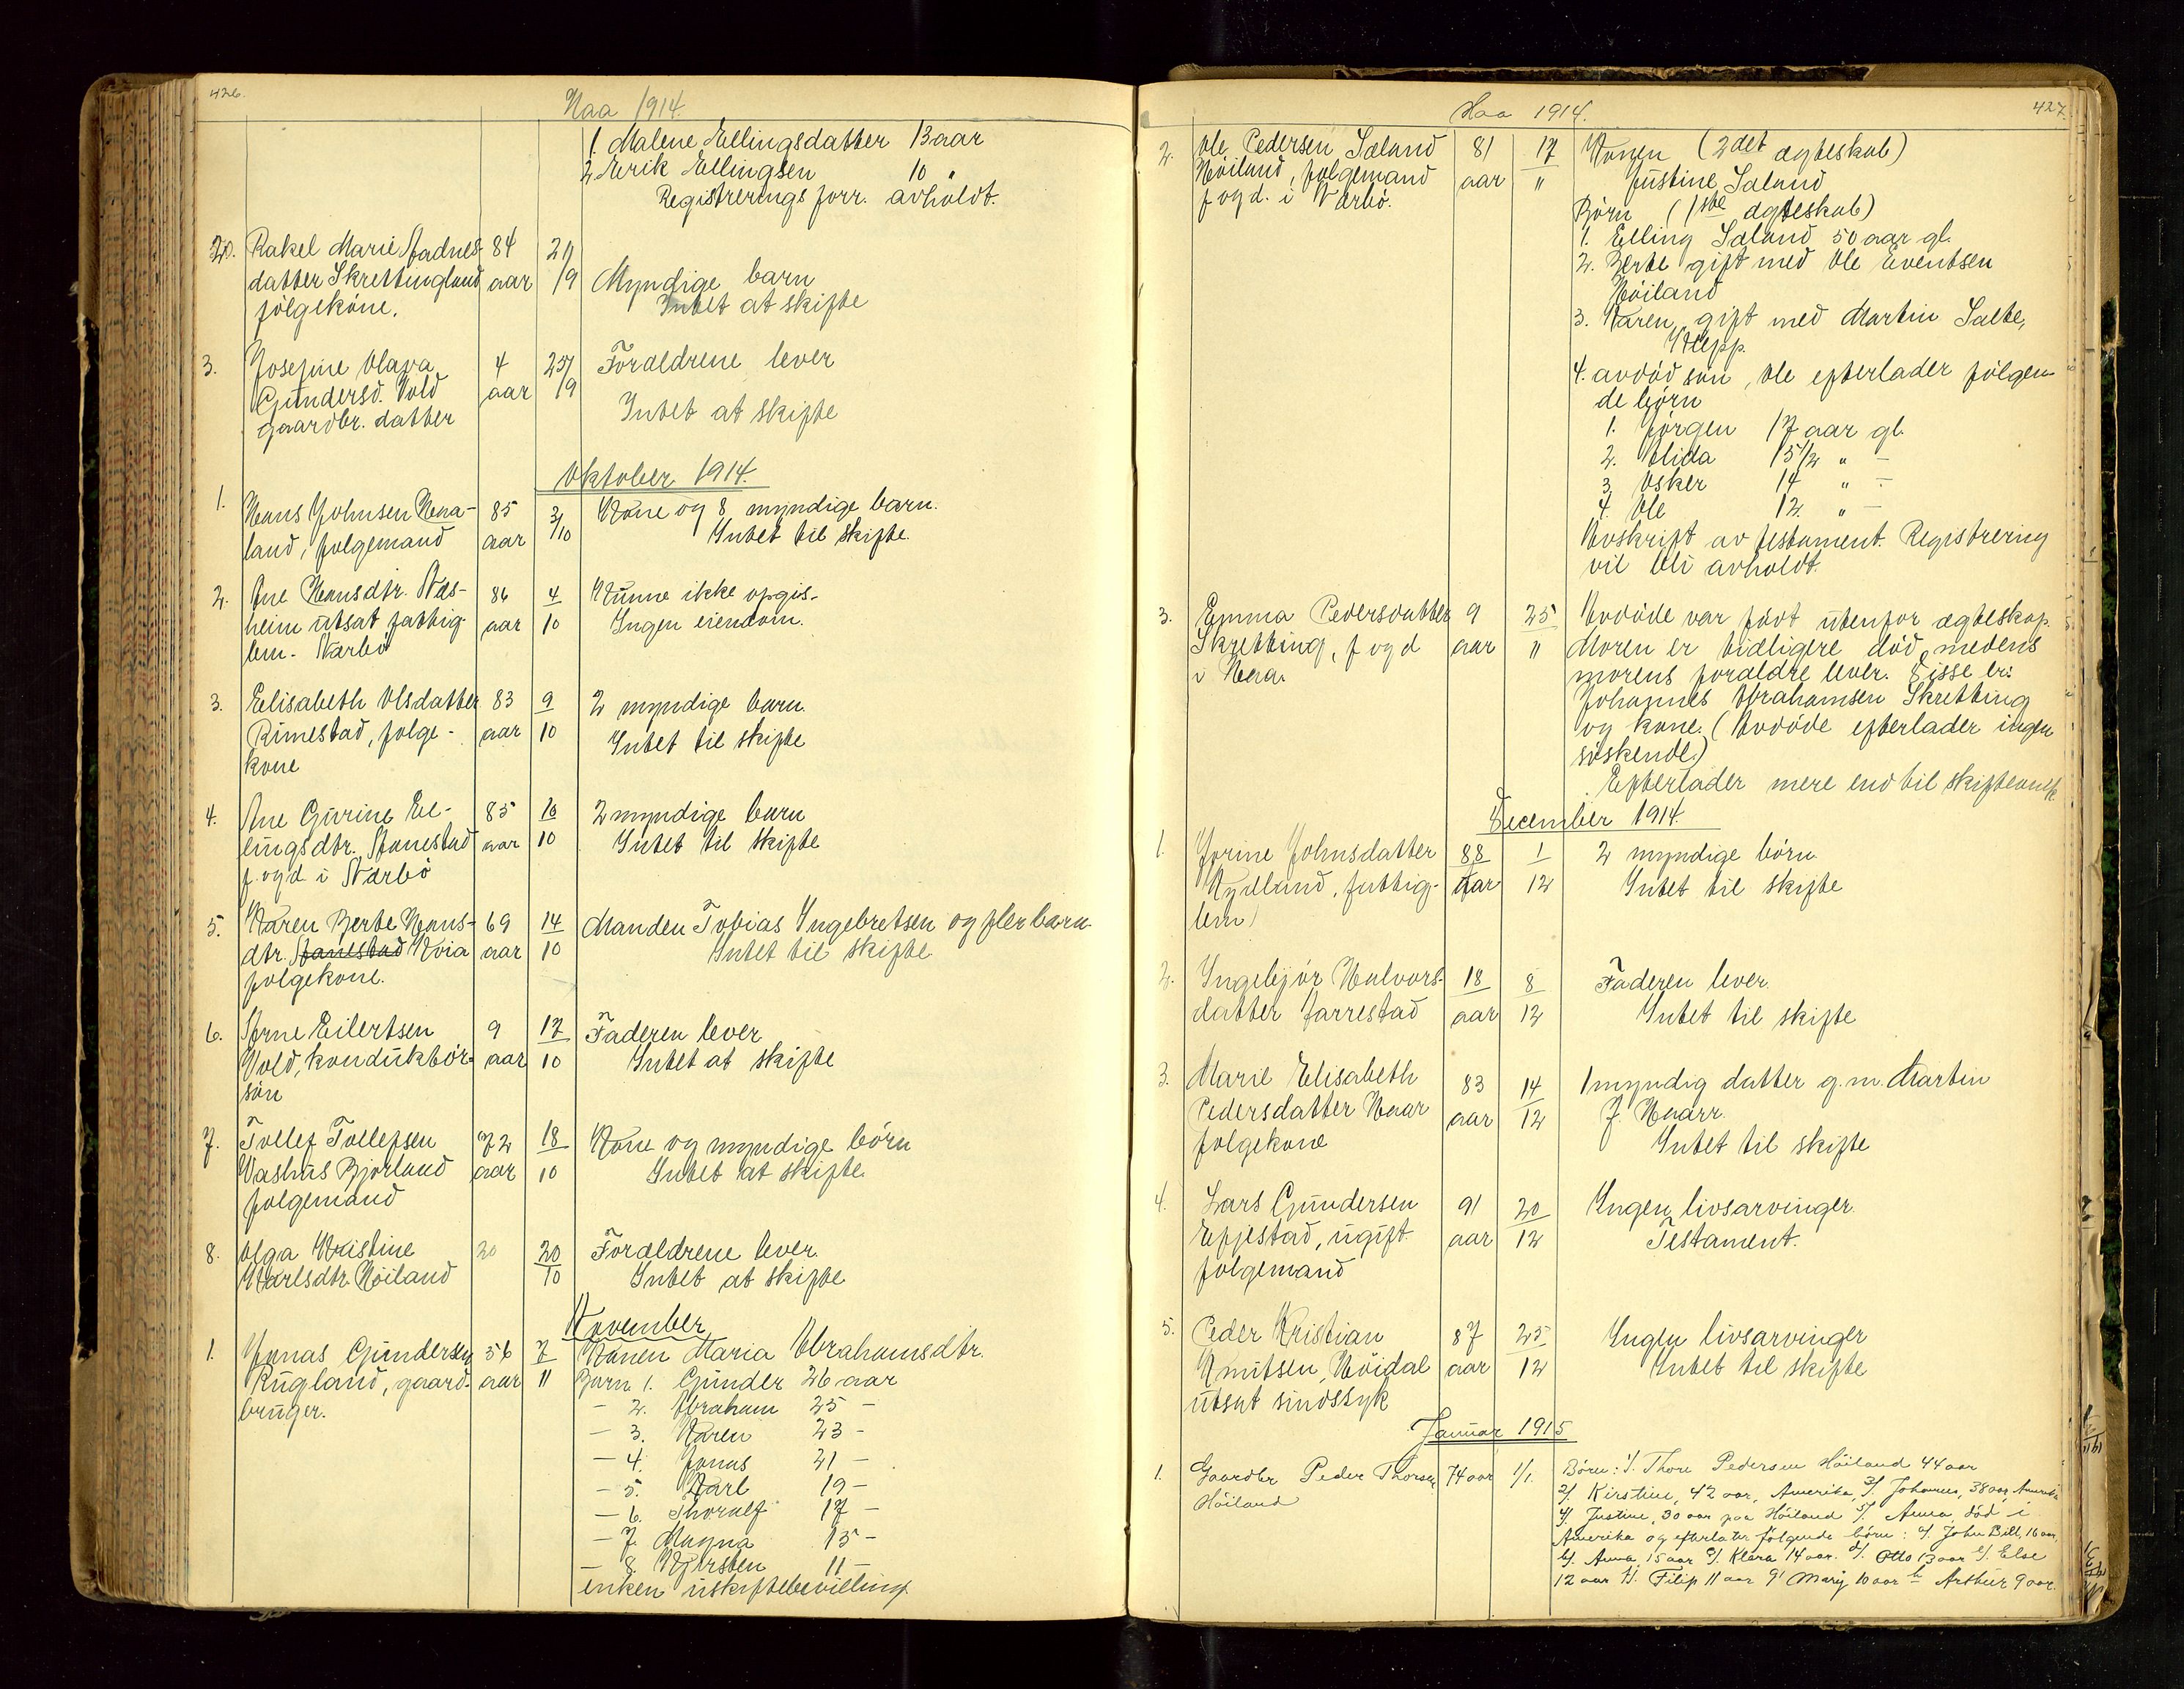 426.
Haa 1914.
1. Malene Ellingsdatter 13 aar
2. Erik Ellingsen 10 "
Registrerings forr. avholdt.
20. Rakel Marie Stadnes- 84 21/9
datter Skrettingland aar Myndige barn
følgekone. Intet at skifte
3. Josefine Olava 4 25/9 Forældrene lever
Gundersd. Vold aar
gaardbr. datter Intet at skifte
Oktober 1914.
1. Hans Johnsen Haa- 85 3/10 Kone og 8 myndige barn.
land, følgemand aar Intet til skifte.
2. Ane Hansdtr. Næs- 86 4/10 Kunne ikke opgis-
heim utsat fattig- aar Ingen eiendom.
lem. Nærbø
3. Elisabeth Olsdatter 83 9/10 2 myndige barn.
Rimestad, følge- aar Intet til skifte
kone
4. Ane Gurine El- 85 10/10 2 myndige barn
lingsdtr. Stanestad aar Intet til skifte
f. og d. i Nærbø
5. Karen Berte Hans- 69 14/10 Manden Tobias Ingebretsen og fler barn.
dtr. Stanestad Kvia aar Intet til skifte
følgekone.
6. Arne Eilertsen 9 17/10 Faderen lever
Vold, konduktør- aar Intet at skifte
søn
7. Tollef Tollefsen 72 18/10 Kone og myndige børn
Vashus Bjorland aar Intet at skifte.
følgemand
8. Olga Kristine 20 20/10 Forældrene lever.
Karlsdtr. Høiland Intet at skifte
November
1. Jonas Gundersen 56 7/11 Konen Maria Abrahamsdtr.
Rugland, gaard- aar Barn 1. Gunder 26 aar
bruger. - 2. Abraham 25 -
- 3. Karen 23 -
- 4. Jonas 21 -
- 5. Karl 19 -
- 6. Thoralf 17 -
- 7. Magna 15 -
- 8. Kjersten 11 -
enken uskiftebevilling.
Haa 1914.
427.
2. Ole Pedersen Sæland 81 17/11 Konen (2det ægteskab)
Høiland, følgemand aar Justine Sæland
f og d. i Nærbø. Børn (1ste ægteskab)
1. Elling Sæland 50 aar gl.
2. Berte gift med Ole Eventsen
Høiland
3. Karen, gift med Martin Salte,
Klepp.
4. avdød søn, Ole efterlader følgen-
de børn
1. Jørgen 17 aar gl.
2. Olida 15 1/2 " -
3. Osker 14 " -
4. Ole 12 " -
Avskrift av testament. Registrering
vil bli avholdt.
3. Emma Pedersdatter 9 25/11 Avdøde var født utenfor ægteskap.
Skretting, f og d aar Moren er tidligere død, medens
i Haa. morens forældre lever. Disse er:
Johannes Abrahamsen Skretting
og kone. (Avdøde efterlader ingen
søskende.)
Efterlader mere end til skifteomk
December 1914.
1. Jorine Johnsdatter 88 1/12 2 myndige børn.
Kydland, fattig- aar Intet til skifte
lem)
2. Ingebjør Halvors- 18 8/12 Faderen lever.
datter Tarrestad aar Intet til skifte
3. Marie Elisabeth 83 14/12 1 myndig datter g.m. Martin
Pedersdatter Haar aar J. Haarr.
følgekone Intet til skifte
4. Lars Gundersen 91 20/12 Ingen livsarvinger.
Efjestad, ugift aar Testament.
følgemand
5. Peder Kristian 87 25/12 Ingen livsarvinger
Knutsen, Høidal aar Intet til skifte
utsat sindssyk
Januar 1915
1. Gaardbr Peder Thorsen 74 aar 1/1. Børn: 1/. Thore Pedersen Höiland 44 aar
Höiland 2/. Kirstine, 42 aar, Amerika, 3/. Johannes, 38 aar, Amerika
4/. Justine, 30 aar paa Höiland 5/. Anna, död i
Amerika og efterlater følgende børn: a/. John Bill, 16 aar,
b/. Anna, 15 aar c/. Klara 14 aar. d/. Otto 13 aar e/. Else
12 aar f/. Filip 11 aar g/ Mary 10 aar h/ Arthur 9 aar.